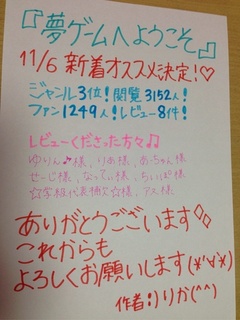 『夢ゲームへようこそ』
11/6 新着オススメ決定!♡
ジャンル3位! 閲覧3152人!
ファン1249人! レビュー8件!
レビューくださった方々♫
ゆりん♪様, りあ様, あーちゃん様
せーじ様, なってぃ様, ちぃぽ様
☆学級代表補欠☆様, アス様
ありがとうございます◇◇
これからも
よろしくお願いします(*'∀`*)
作者:りりか(^^)